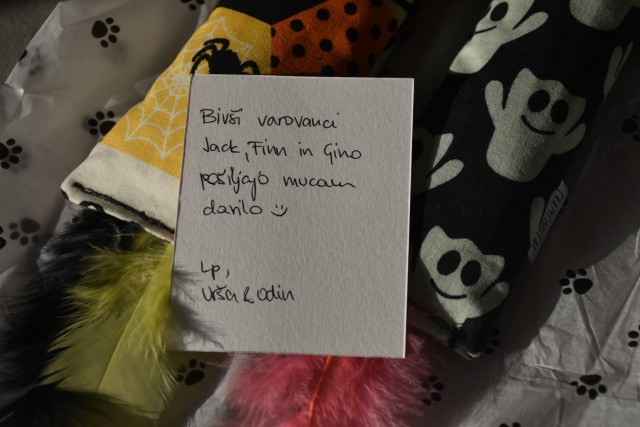 Bivši varovanci
Jack, Finn in Gino
pošiljajo mucam
darilo
Lp,
Urša & Odin